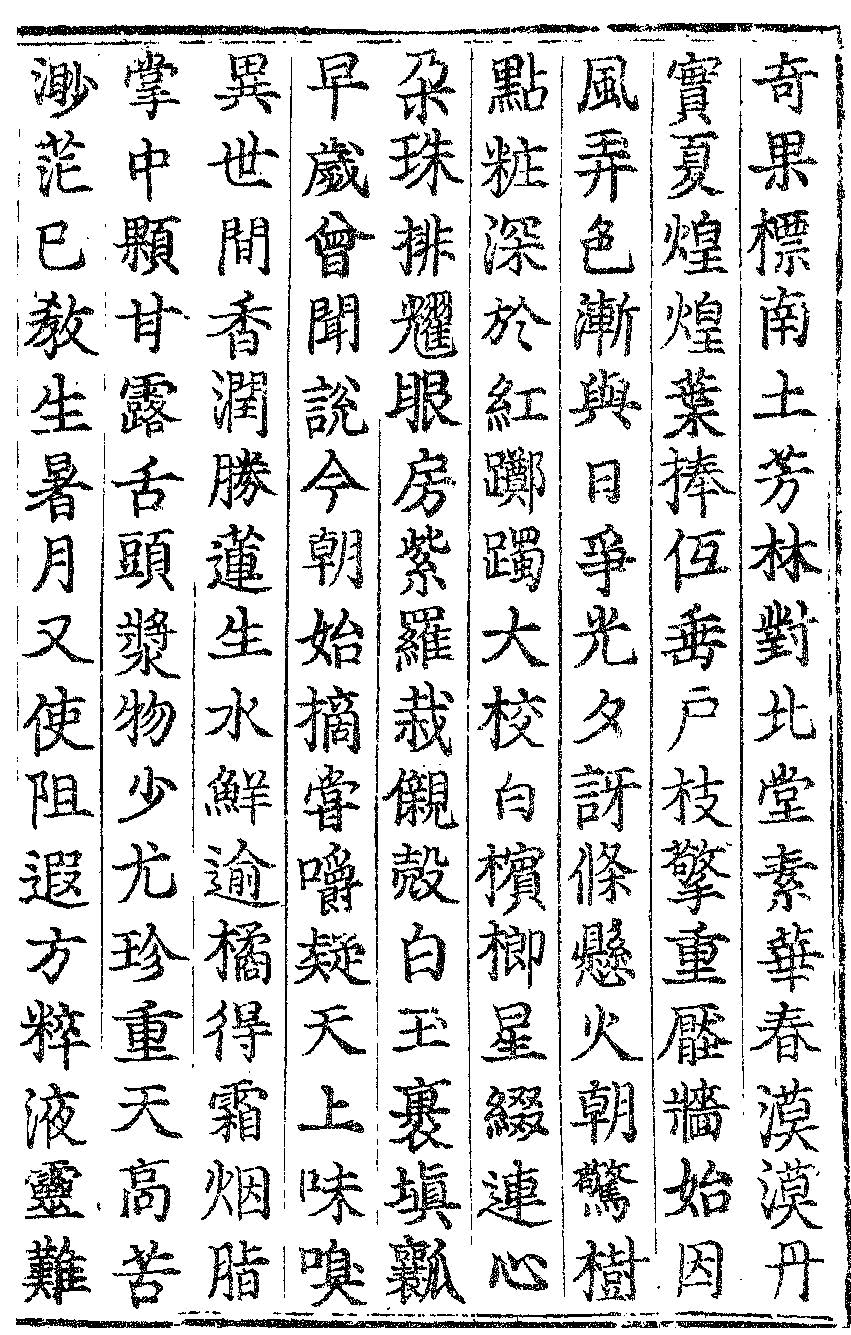 奇果標南土芳林對北堂素華春漠漠丹
實夏煌煌葉捧低垂户枝擎重壓牆始因
風弄色漸與日爭光夕訝條懸火朝驚樹
點粧深於紅躑躅大校白檳榔星綴連心
朶珠排耀眼房紫羅裁儭殻白玉裹填瓤
早歲曾聞說今朝始摘嘗嚼疑天上味嗅
異世間香潤勝蓮生水鮮逾橘得霜烟脂
掌中顆甘露舌頭漿物少尤珍重天高苦
渺茫已教生暑月又使阻遐方粹液靈難